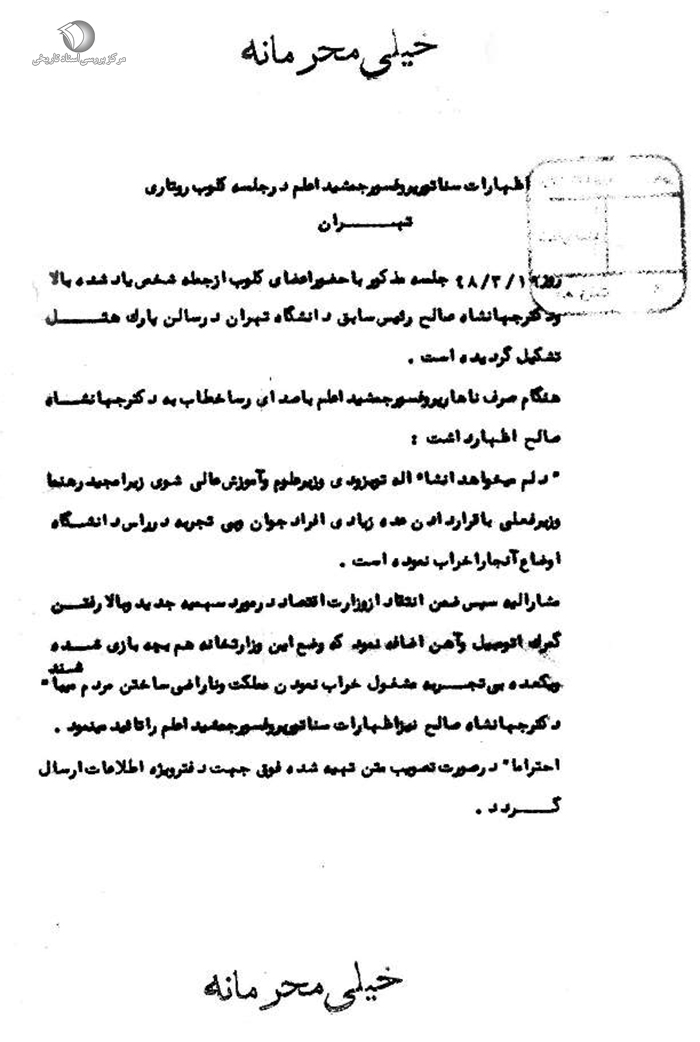 مرکز بررسی اسناد تاریخی
خیلی محرمانه
اظهارات سناتور پروفسور جمشید اعلم در جلسه کلوب روتاری
تهـــران
روز ۴۸/۳/۱۹ جلسه مذکور با حضور اعضای کلوب از جمله شخص یاد شده بالا
و دکتر جهانشاه صالح رئیس سابق دانشگاه تهران در سالن پارک هتـــل
تشکیل گردیده است .
هنگام صرف ناهار پروفسور جمشید اعلم با صدای رسا خطاب به دکتر جهانشـــاه
صالح اظهار داشت :
" دلم میخواهد انشاء اله تو بزودی وزیر علوم و آموزش عالی شوی زیرا مجید رهنما
وزیر فعلی با قرار دادن عده زیادی افراد جوان و بی تجربه در راس دانشـگاه
اوضاع آنجا را خراب نموده است .
مشارالیه سپس ضمن انتقاد از وزارت اقتصاد در مورد سهمیه جدید و بالا رفتـن
گمرک اتومبیل و آهن اضافه نمود که وضع این وزارتخانه هم بچه بازی شـده
و یکعده بی تجـربه مشغول خراب نمودن مملکت و ناراضی ساختن مردم میبا شند "
دکتر جهانشاه صالح نیز اظهارات سناتور پروفسور جمشید اعلم را تائید مینمود .
احتراما" در صورت تصویب متن تهیه شده فوق جهت دفتر ویژه اطلاعات ارسال
گـــردد .
خیلی محرمانه